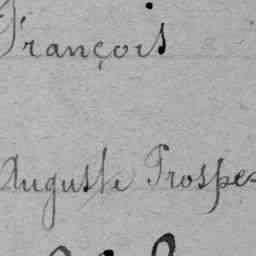 François
Auguste Prosper